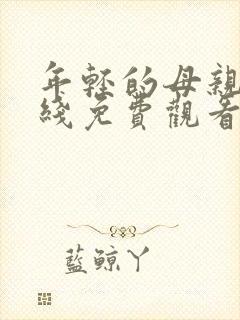 年轻的母親
綫免費觀看
藍鲸丫